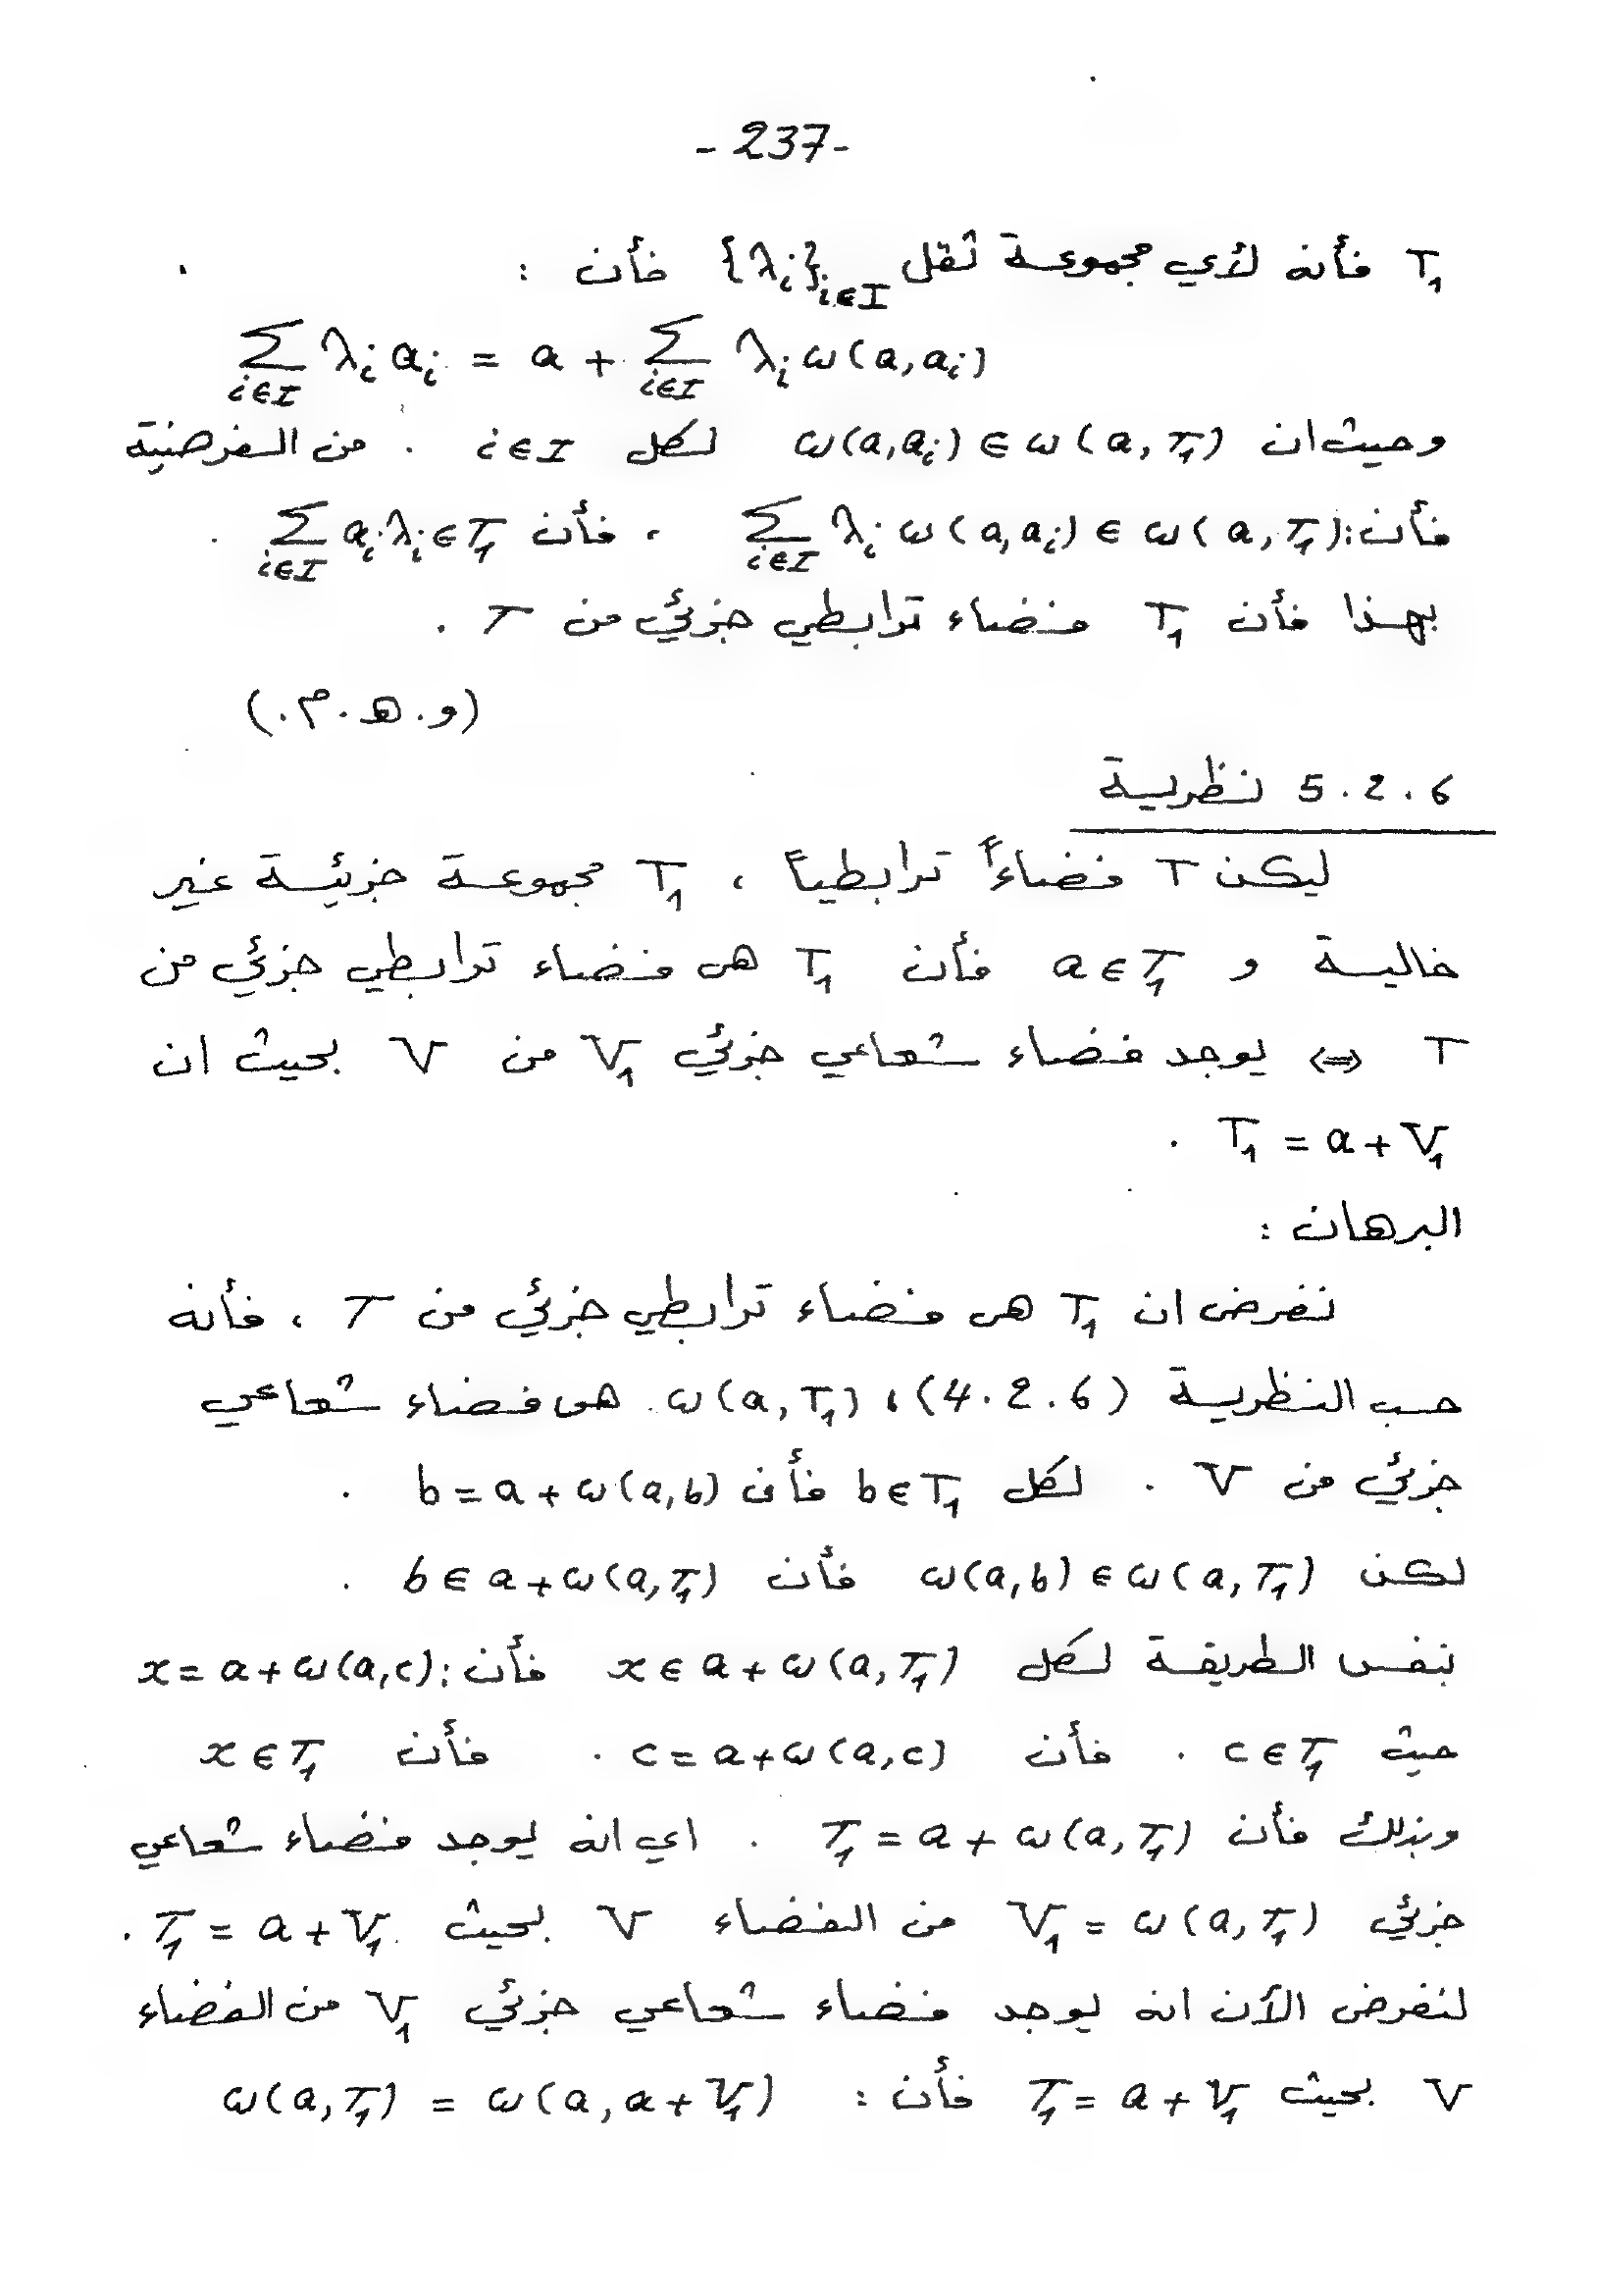 - 237 -
T₁ فأنه لأي مجموعة ثقل {λᵢ}ᵢ∈I فأن :
∑ᵢ∈I λᵢ aᵢ = a + ∑ᵢ∈I λᵢ ω(a, aᵢ)
وحيث ان ω(a,aᵢ) ∈ ω(a,T₁) لكل i∈I . من الفرضية
فأن: ∑ᵢ∈I λᵢ ω(a,aᵢ) ∈ ω(a,T₁) ، فأن ∑ᵢ∈I aᵢλᵢ ∈ T₁ .
بهذا فأن T₁ فضاء ترابطي جزئي من T .
(و . هـ . م .)
5 . 2 . 6 نظرية
ليكن T فضاءاً ترابطياً ، T₁ مجموعة جزئية غير
خالية و a∈T₁ فأن T₁ هى فضاء ترابطي جزئي من
T ⇔ يوجد فضاء شعاعي جزئي V₁ من V بحيث ان
T₁ = a + V₁ .
البرهان :
نفرض ان T₁ هى فضاء ترابطي جزئي من T ، فأنه
حسب النظرية (4 . 2 . 6) ، ω(a,T₁) هى فضاء شعاعي
جزئي من V . لكل b∈T₁ فأن b = a + ω(a,b) .
لكن ω(a,b) ∈ ω(a,T₁) فأن b ∈ a + ω(a,T₁) .
بنفس الطريقة لكل x ∈ a + ω(a,T₁) فأن: x = a + ω(a,c)
حيث c∈T₁ . فأن c = a + ω(a,c) . فأن x∈T₁
وبذلك فأن T₁ = a + ω(a,T₁) . اي انه يوجد فضاء شعاعي
جزئي V₁ = ω(a,T₁) من الفضاء V بحيث T₁ = a + V₁ .
لنفرض الآن انه يوجد فضاء شعاعي جزئي V₁ من الفضاء
V بحيث T₁ = a + V₁ فأن : ω(a,T₁) = ω(a, a + V₁)